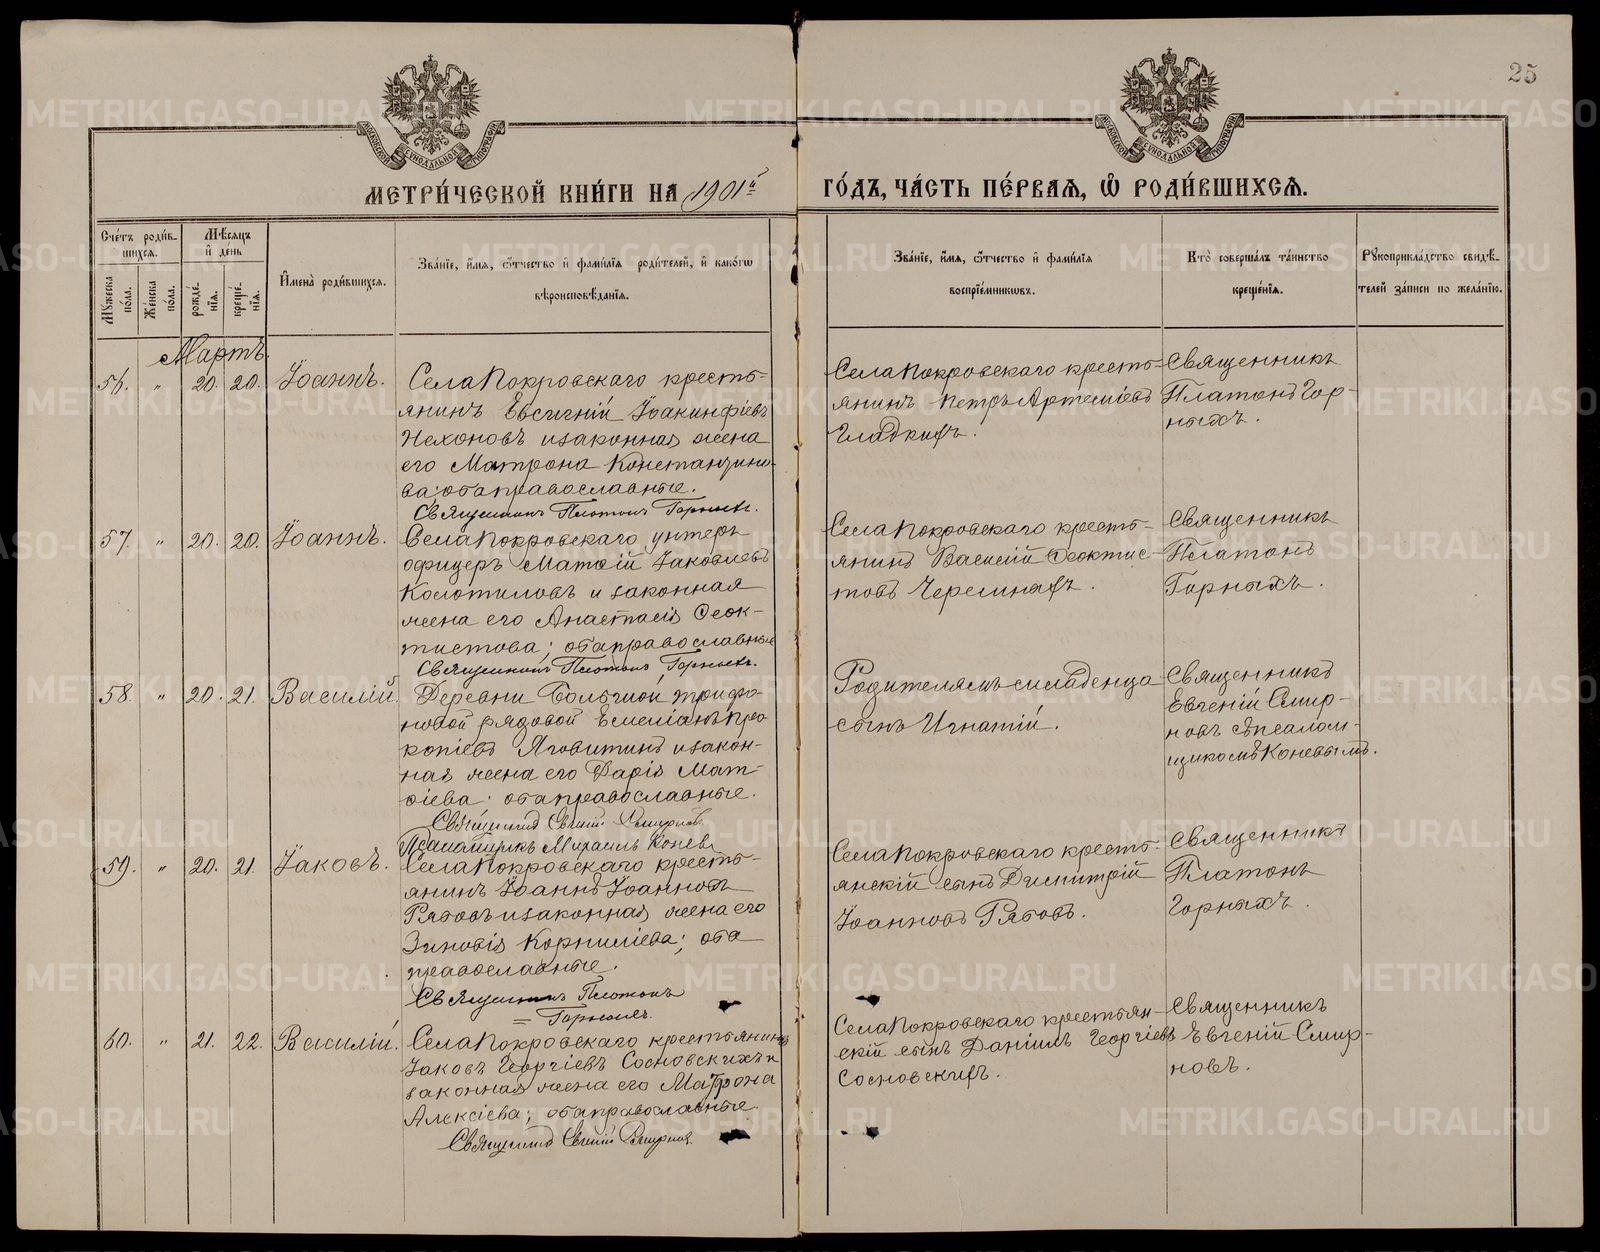 25
МЕТРИ́ЧЕСКОЙ КНИ́ГИ НА 1901й ГО́ДЪ, ЧА́СТЬ ПЕ́РВАѦ, Ѿ РОДИ́ВШИХСѦ.
Сче́тъ роди́в-
шихся.
Мѣ́сяцъ
и҆ де́нь
Мꙋжеска по́ла.
Же́нска по́ла.
рожде́-нїя.
креще́-нїя.
И҆мена̀ роди́вшихся.
Зва́нїе, и҆́мя, ѻ҆́тчество и҆ фами́лїя роди́телей, и҆ како́гѡ
вѣроисповѣ́данїя.
Зва́нїе, и҆́мя, ѻ҆́тчество и҆ фами́лїя
воспрїе́мникѡвъ.
Кто̀ соверша́лъ та́инство
креще́нїя.
Рꙋкоприкла́дство свидѣ́-
телей за́писи по жела́нїю.
Мартъ.
56. " 20. 20. Іоаннъ.
Села Покровскаго кресть-
янинъ Евсигній Іоакинфіевъ
Нехоновъ и законная жена
его Матрона Константино-
ва; оба православные.
Священникъ Платонъ Горныхъ.
Села Покровскаго кресть-
янинъ Петръ Артеміевъ
Гладкихъ.
Священникъ
Платонъ Гор-
ныхъ.
57. " 20. 20. Іоаннъ.
Села Покровскаго унтеръ
офицеръ Матѳій Іаковлевъ
Колотиловъ и законная
жена его Анастасія Ѳеок-
тистова; оба православные
Священникъ Платонъ Горныхъ.
Села Покровскаго кресть-
янинъ Василій Ѳеоктис-
товъ Черемныхъ.
Священникъ
Платонъ
Горныхъ.
58. " 20. 21. Василій.
Деревни Большой Трифо-
новой рядовой Емеліанъ Про-
копіевъ Яговитинъ и закон-
ная жена его Дарія Мат-
ѳіева; оба православные.
Священникъ Евгеній Смирновъ.
Псаломщикъ Михаилъ Коневъ
Родителямъ младенца
сынъ Игнатій.
Священникъ
Евгеній Смир-
новъ съ псалом-
щикомъ Коневымъ.
59. " 20. 21. Іаковъ.
Села Покровскаго кресть-
янинъ Іоаннъ Іоанновъ
Рябовъ и законная жена его
Зиновія Корниліева; оба
православные.
Священникъ Платонъ
Горныхъ.
Села Покровскаго кресть-
янскій сынъ Димитрій
Іоанновъ Рябовъ.
Священникъ
Платонъ
Горныхъ.
60. " 21. 22. Василій.
Села Покровскаго крестьянинъ
Іаковъ Георгіевъ Сосновскихъ и
законная жена его Матрона
Алексіева; оба православные.
Священникъ Евгеній Смирновъ.
Села Покровскаго крестьян-
скій сынъ Даніилъ Георгіевъ
Сосновскихъ.
Священникъ
Евгеній Смир-
новъ.
METRIKI.GASO-URAL.RU